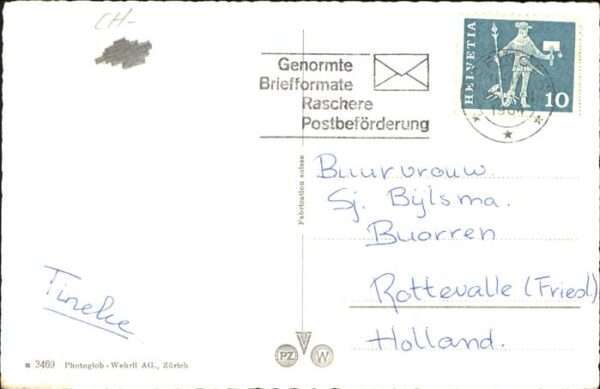 CH-
Genormte
Briefformate
Raschere
Postbeförderung
HELVETIA
10
Fabrication suisse
Buurvrouw
Sj. Bijlsma.
Buorren
Rottevalle (Friesl)
Holland.
Tineke
3469 Photoglob-Wehrli AG., Zürich
PZ
W